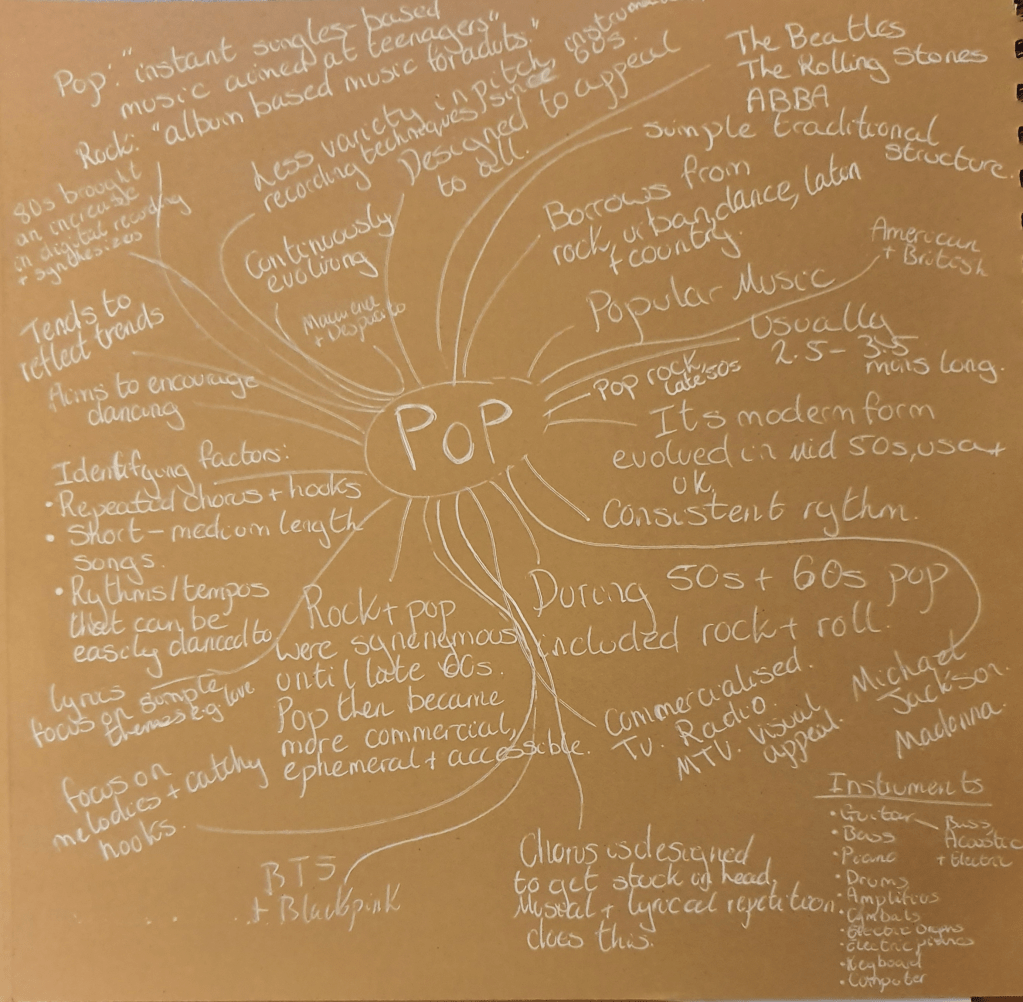 Pop: "instant singles based
music aimed at teenagers"
Rock: "album based music for adults."
80s brought
an increase
in digital recording
+ synthesizers
Less variety in pitch,
recording techniques since 60s.
Designed to appeal
to all.
The Beatles
The Rolling Stones
ABBA
Simple traditional
structure.
Borrows from
rock, urban, dance, latin
+ country.
American
+ British
Continuously
evolving
+ Despacito
Popular Music
Usually
2.5 - 3.5
mins long.
Tends to
reflect trends
Pop rock,
late 50s
Aims to encourage
dancing
POP
It's modern form
evolved in mid 50s, USA +
UK.
Identifying factors:
• Repeated chorus + hooks
• Short - medium length
songs.
• Rythms/tempos
that can be
easily danced to
Consistent rythm.
During 50s + 60s pop
included rock + roll.
Rock + pop
were synonymous
until late 60s.
Pop then became
more commercial,
ephemeral + accessible.
lyrics
focus on simple
themes e.g love
Commercialised.
TV. Radio.
MTV. Visual
appeal.
Michael
Jackson.
Madonna.
focus on
melodies + catchy
hooks.
BTS
+ Blackpink
Chorus is designed
to get stuck in head,
Musical + lyrical repitition
does this.
Instruments
• Guitar
Bass
Acoustic
+ Electric
• Bass
• Piano
• Drums
• Cymbals
• Electric Drums
• Electric pianos
• Keyboard
• Computer